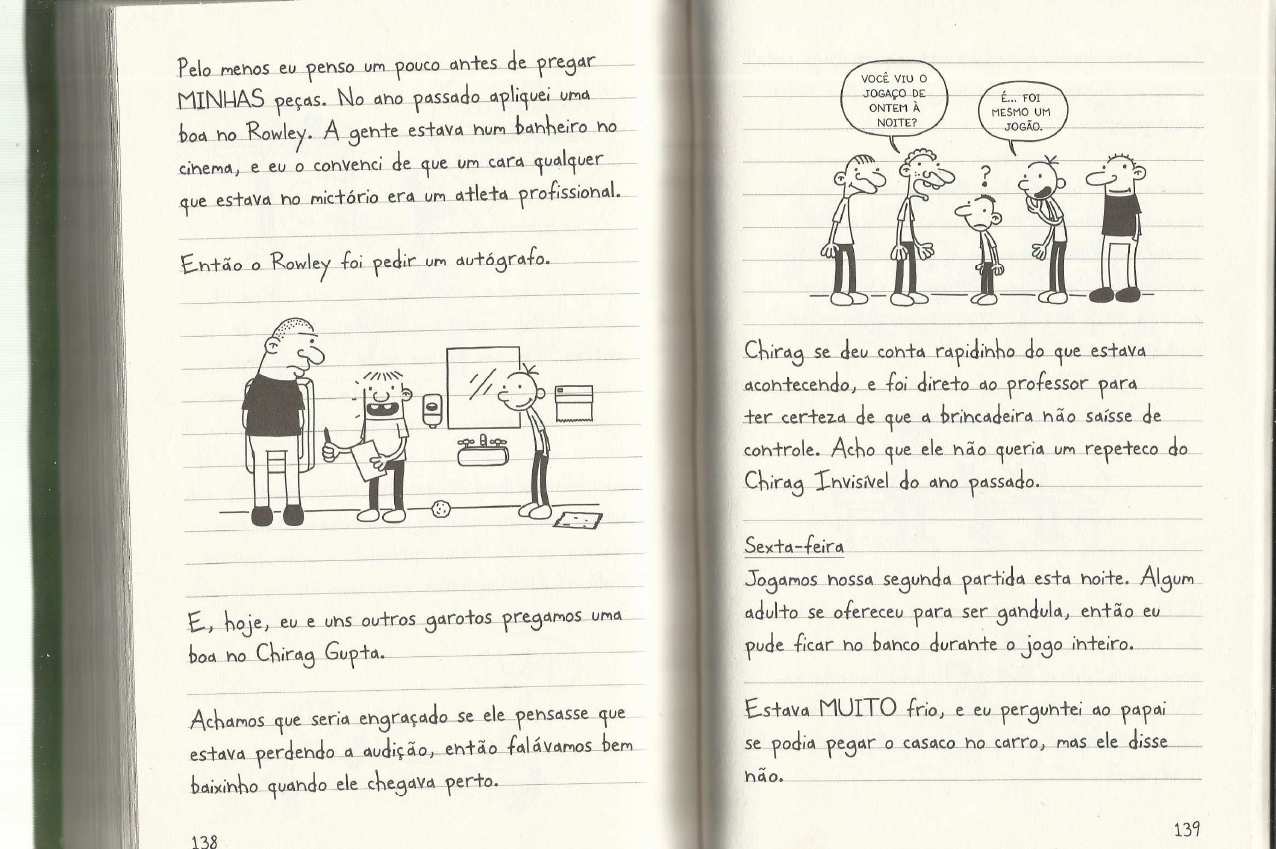 Pelo menos eu penso um pouco antes de pregar
MINHAS peças. No ano passado apliquei uma
boa no Rowley. A gente estava num banheiro no
cinema, e eu o convenci de que um cara qualquer
que estava no mictório era um atleta profissional.
Então o Rowley foi pedir um autógrafo.
E, hoje, eu e uns outros garotos pregamos uma
boa no Chirag Gupta.
Achamos que seria engraçado se ele pensasse que
estava perdendo a audição, então falávamos bem
baixinho quando ele chegava perto.
138
VOCÊ VIU O
JOGAÇO DE
ONTEM À
NOITE?
É... FOI
MESMO UM
JOGÃO.
?
Chirag se deu conta rapidinho do que estava
acontecendo, e foi direto ao professor para
ter certeza de que a brincadeira não saísse de
controle. Acho que ele não queria um repeteco do
Chirag Invisível do ano passado.
Sexta-feira
Jogamos nossa segunda partida esta noite. Algum
adulto se ofereceu para ser gandula, então eu
pude ficar no banco durante o jogo inteiro.
Estava MUITO frio, e eu perguntei ao papai
se podia pegar o casaco no carro, mas ele disse
não.
139